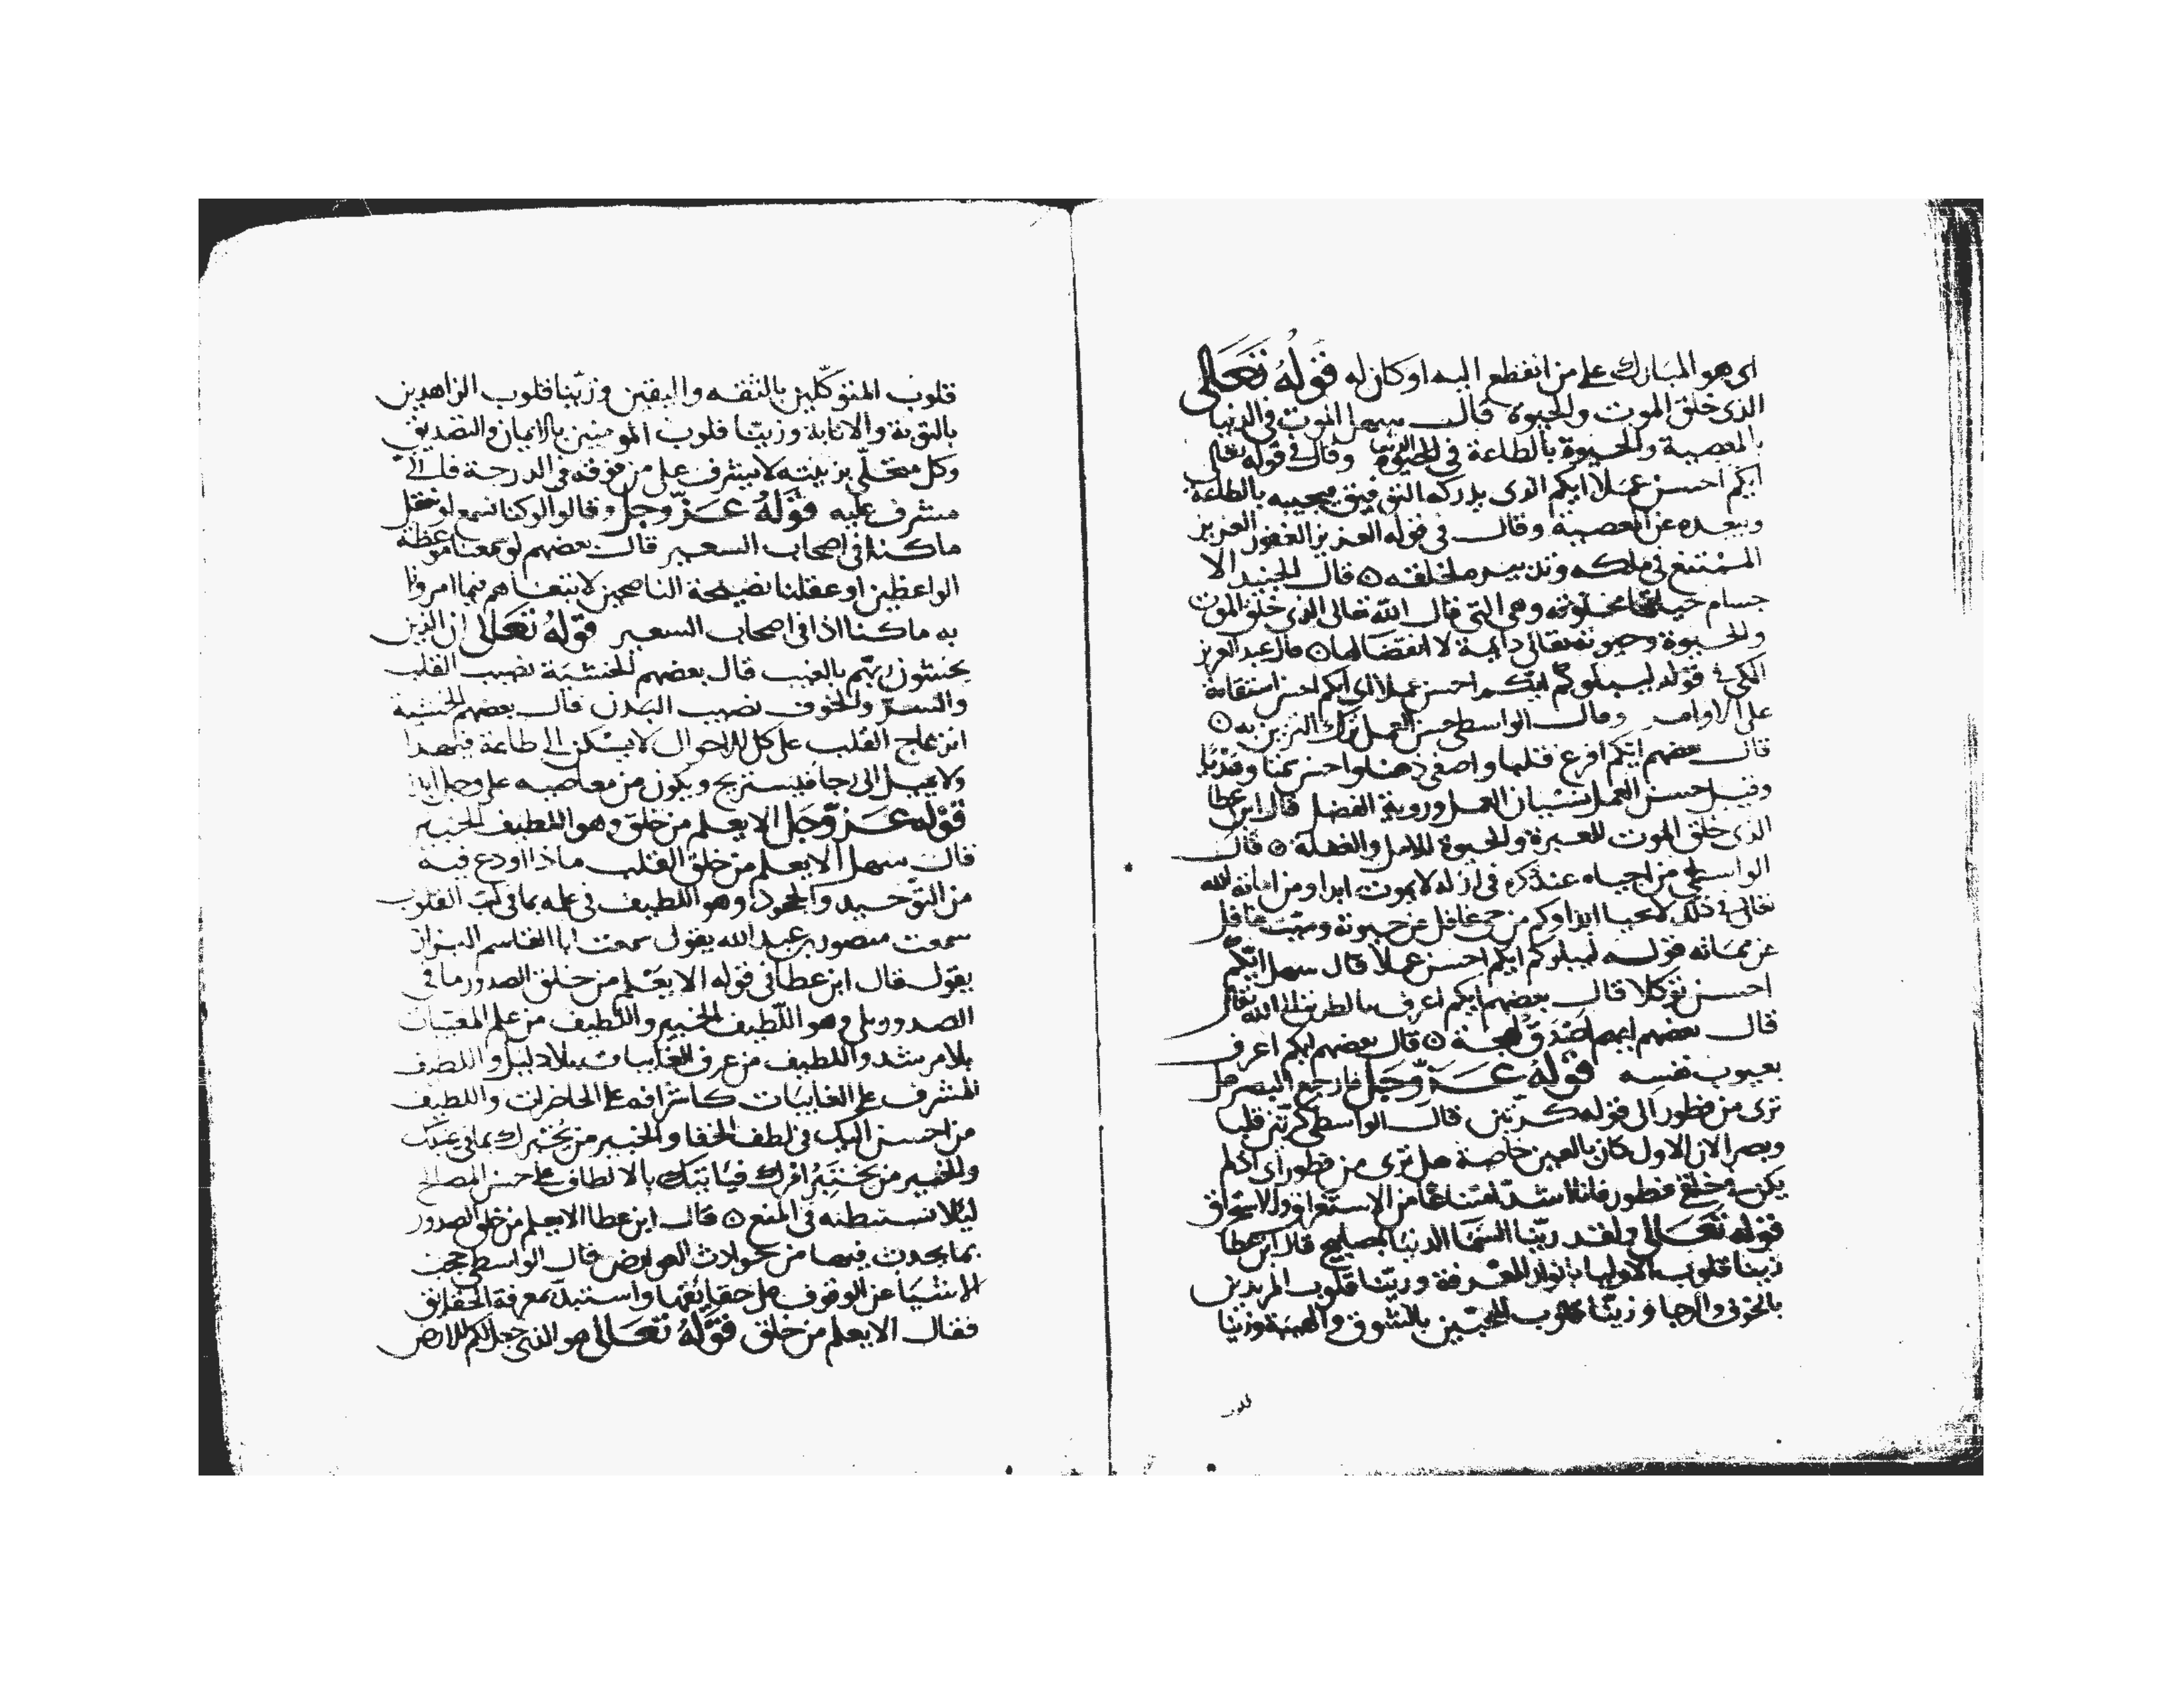 اى هو المبارك على من انقطع اليه او كان له قوله تعالى
الذى خلق الموت والحيوة قال سهل الموت فى الدنيا
بالمعصية والحيوة بالطاعة فى وقال فى قوله تعالى
ايكم احسن عملا ايكم الذى يدركه التوفيق بالطاعة
ويبعده عن المعصية وقال فى قوله العزيز الغفور العزيز
الممتنع فى ملكه وتدبيره ه قال الجنيد الا
جسام وهى التى قال الله تعالى الذى خلق الموت
والحيوة دايمة لا انقضا لها ه قال عبد العزيز
المكى فى قوله ليبلوكم ايكم احسن عملا اى ايكم احسن استقامة
على الاوامر وقال الواسطى حسن العمل ترك التزين به ه
قال بعضهم ايكم افرغ قلبا واصفى ذهنا واحسن
وقيل حسن العمل نسيان العمل وروية الفضل قال ابن عطا
الذى خلق الموت للعبرة والحيوة للامل والغفلة ه قال
الواسطى من احياه عند ذكره فى ازله لا يموت ابدا ومن اماته الله
تعالى فى ذلك لا يحيا ابدا وكم من حى غافل عن حيوته وميت غافل
عن مماته قوله ليبلوكم ايكم احسن عملا قال سهل ايكم
احسن توكلا قال بعضهم ايكم اعرف بالطريق الى الله تعالى
قال بعضهم ايهم اصدق لهجة ه قال بعضهم ايكم اعرف
بعيوب نفسه قوله عز وجل فارجع البصر هل
ترى من فطور الى قوله كرتين قال الواسطى كرتين قلبا
وبصرا لان الاول كان بالعين خاصة هل ترى من فطور اى اذا لم
يكن فى خلقى فطور فانا اشد امتناعا من الاستغراق
قوله تعالى ولقد زينا السما الدنيا بمصابيح قال ابن عطا
زينا قلوب الاوليا بانوار المعرفة وزينا قلوب المريدين
بالخوف والرجا وزينا قلوب المحبين بالشوق والهيبة وزينا
قلوب
قلوب المتوكلين بالثقه واليقين وزينا قلوب الزاهدين
بالتوبة والانابة وزينا قلوب المومنين بالايمان والتصديق
وكل متحلى بزينته لا يشرف على من فوقه فى الدرجة
مشرف عليه قوله عز وجل وقالوا لو كنا نسمع او نعقل
ما كنا فى اصحاب السعير قال بعضهم لو سمعنا موعظة
الواعظين او عقلنا نصيحة الناصحين لاتبعناهم فيما امروا
به ما كنا اذا فى اصحاب السعير قوله تعالى ان الذين
يخشون ربهم بالغيب قال بعضهم الخشية نصيب القلب
والسر والخوف نصيب البدن قال بعضهم الخشية
انزعاج القلب على كل الاحوال لا يسكن الى طاعة فيهدا
ولا يميل الى رجا فيستريح ويكون من معاصيه على وجل ابدا
قوله عز وجل الا يعلم من خلق وهو اللطيف الخبير
قال سهل الا يعلم من خلق القلب ماذا اودع فيه
من التوحيد والجحود وهو اللطيف فى علمه بما فى لب القلوب
سمعت منصور بن عبد الله يقول سمعت ابا القاسم البزاز
يقول قال ابن عطا فى قوله الا يعلم من خلق الصدور ما فى
الصدور بلى وهو اللطيف الخبير واللطيف من علم المغيبات
بلا مرشد واللطيف من عرف الغايبات بلا دليل واللطيف
المشرف على الغايبات كاشرافه على الحاضرات واللطيف
من احسن اليك فى لطف الخفا والخبير من يختبرك بما فى غيبك
والخبير من يختبر امرك فياتيك بالالطاف على حسن المصالح
ليلا تستبطنه فى المنع ه قال ابن عطا الا يعلم من خلق الصدور
بما يحدث فيها من حوادث العوارض قال الواسطى حجب
الاشيا عن الوقوف على حقايقها واستبد بمعرفة الحقايق
فقال الا يعلم من خلق قوله تعالى هو الذى جعل لكم الارض